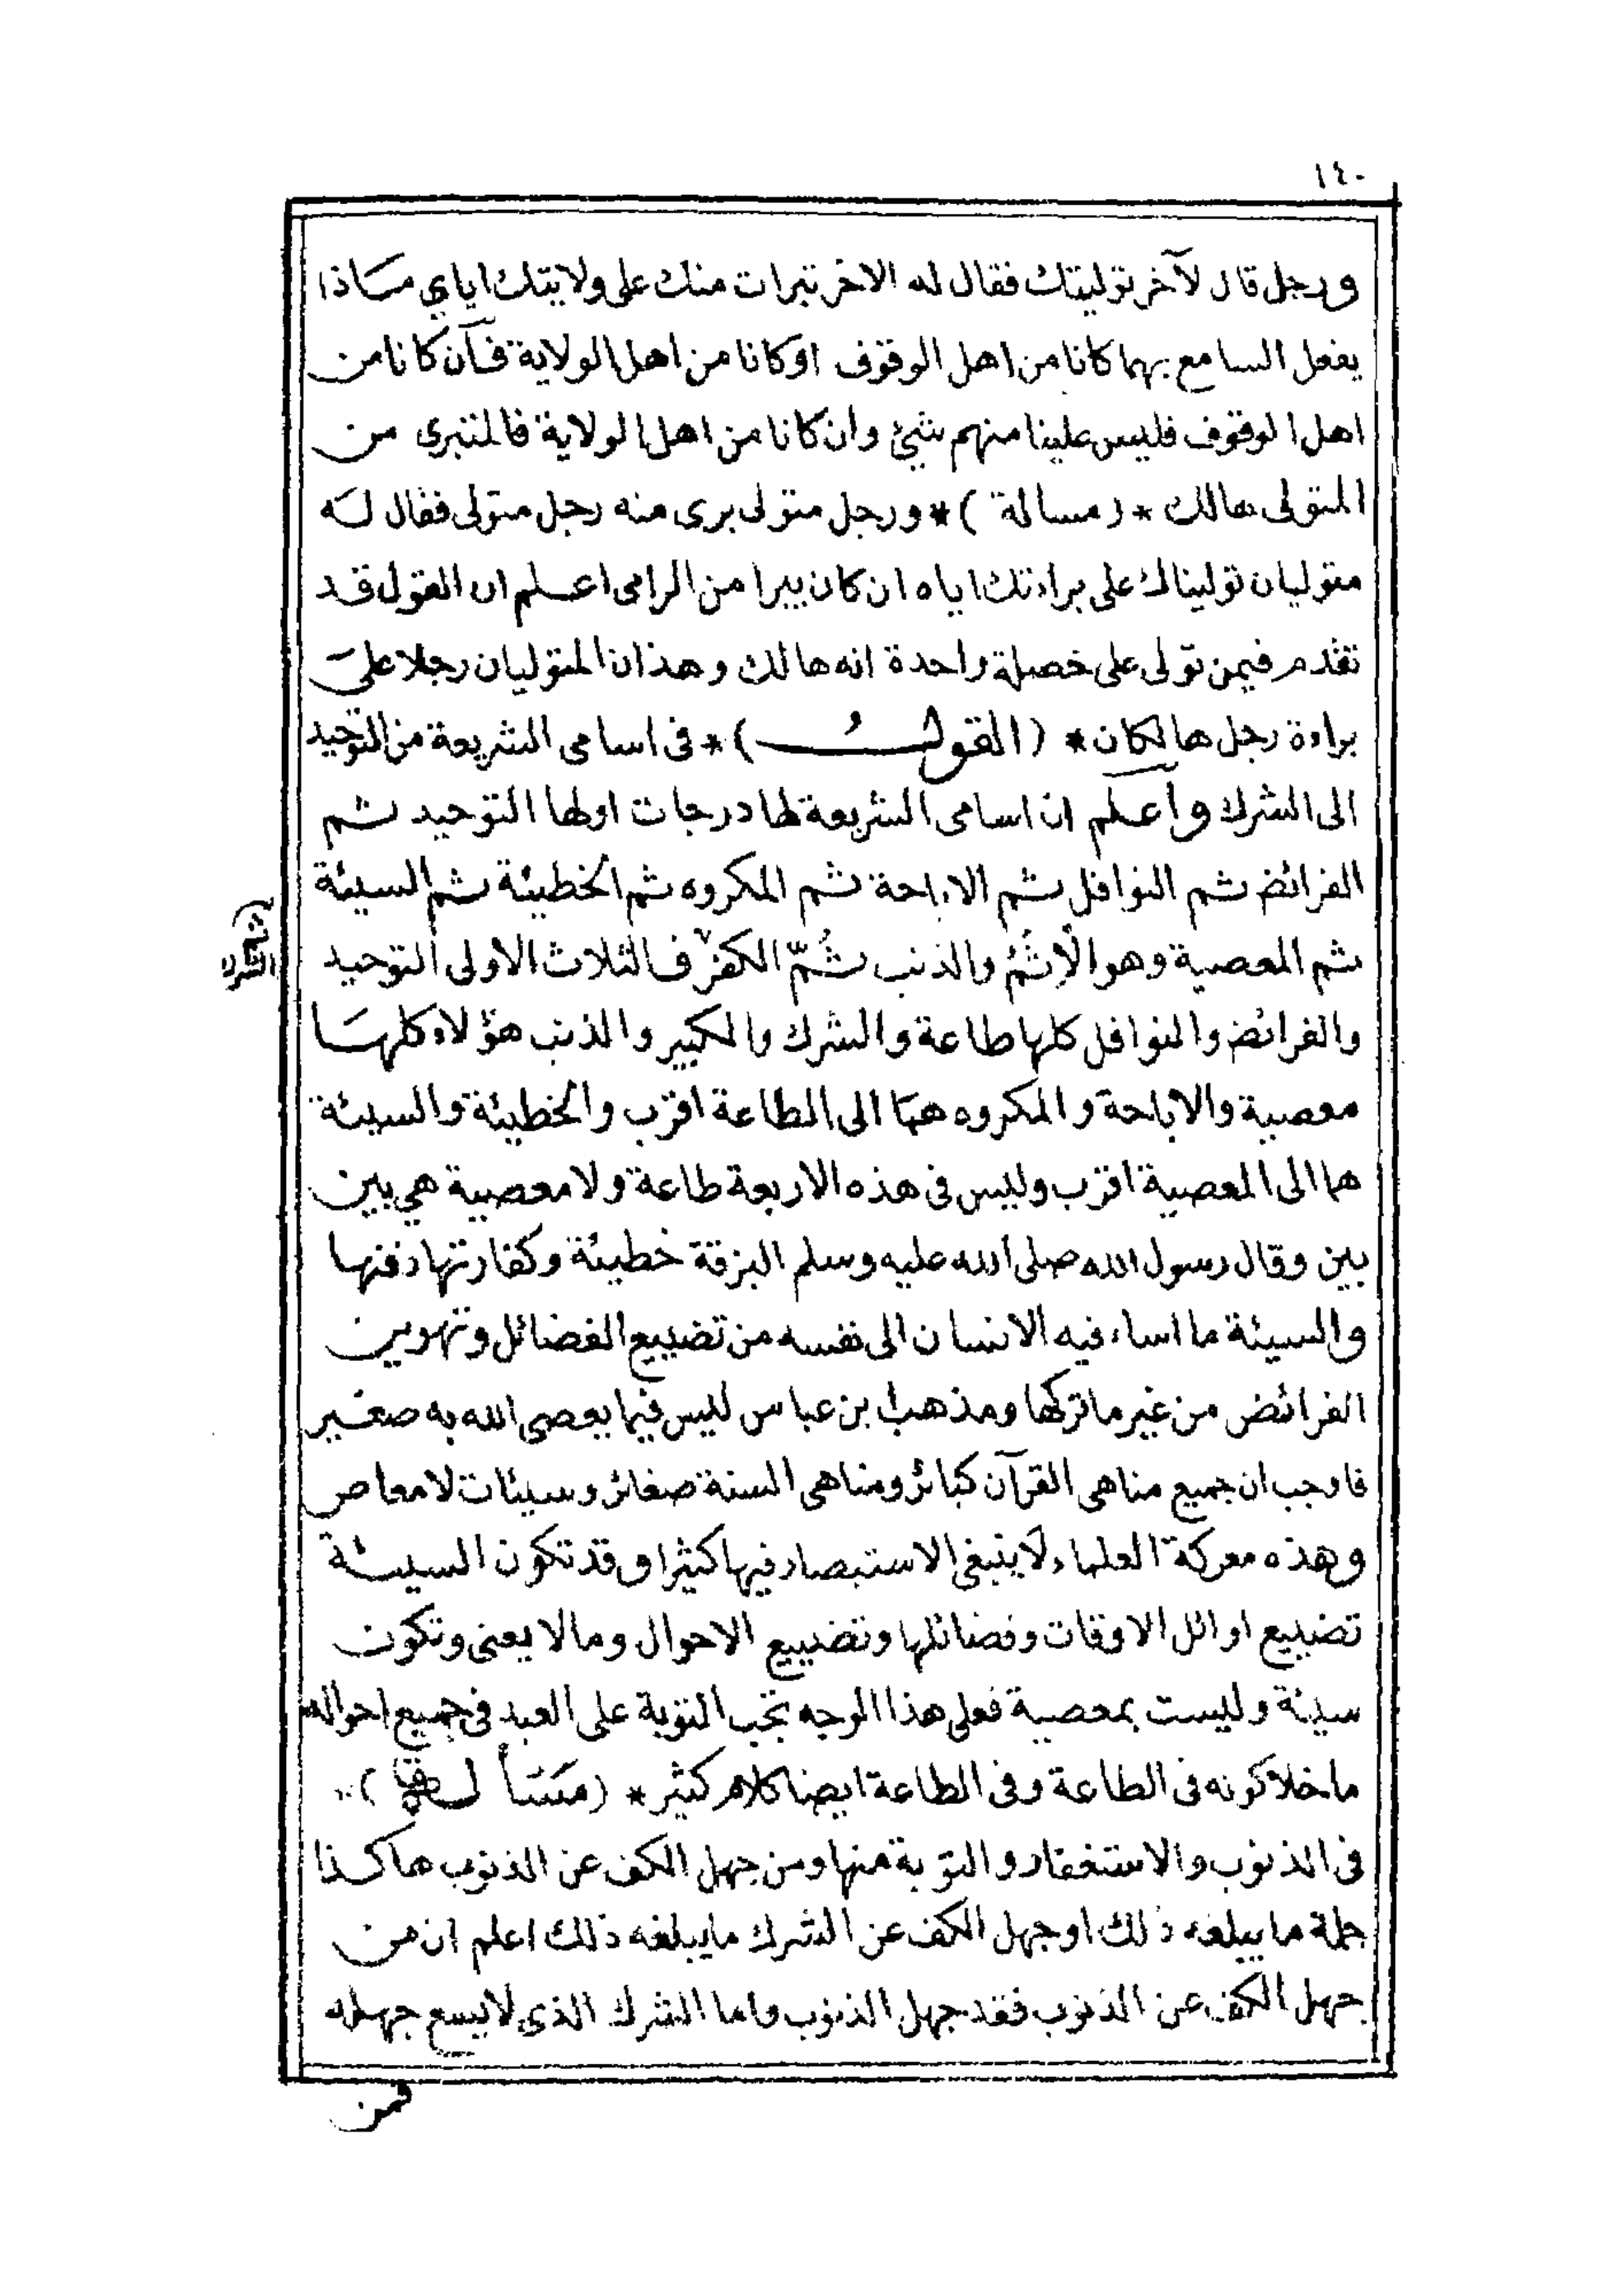 ١٤٠
ورجل قال لآخر توليتك فقال له الاخر تبرات منك على ولايتك اياي مـاذا
يفعل السامع بهما كانا من اهل الوقوف اوكانا من اهل الولاية فآن كانا من
اهل الوقوف فليس علينا منهم شيئ وان كانا من اهل الولاية فالمتبرى من
المتولى هالك * (مسالة) * ورجل متولى برى منه رجل متولى فقال لـه
متوليان توليناك على براءتك اياه ان كان يبرا من الرامى اعـلم ان القول قـد
تقدم فيمن تولى على خصلة واحدة انه هالك وهذان المتوليان رجلا على
براءة رجل هالكان * (القولُ) * فى اسامى الشريعة من التوحيد
الى الشرك وآعـلم ان اسامى الشريعة لها درجات اولها التوحيد ثـم
الفرائض ثم النوافل ثم الاباحة ثم المكروه ثم الخطيئة ثم السيئة
ثم المعصية وهو الْاِثْمُ والذنب ثُمّ الكفر فـالثلاث الاولى التوحيد
ثم الشرك
والفرائض والنوافل كلها طاعة والشرك والكبير والذنب هؤلاء كلهـا
معصية والاباحة والمكروه هما الى الطاعة اقرب والخطيئة والسيئة
هما الى المعصية اقرب وليس فى هذه الاربعة طاعة ولا معصية هي بين
بين وقال رسول الله صلى الله عليه وسلم البزقة خطيئة وكفارتها دفنها
والسيئة ما اساء فيه الانسان الى نفسه من تضييع الفضائل وتهوين
الفرائض من غير ما تركها ومذهب ابن عباس ليس فيما يعصى الله به صغير
فاوجب ان جميع مناهى القرآن كبائر ومناهى السنة صغائر وسيئات لا معاص
وهذه معركة العلماء لا ينبغى الاستبصار فيها كثيرا وقد تكون السيئـة
تضييع اوائل الاوقات وفضائلها وتضييع الاحوال وما لا يعنى وتكون
سيئة وليست بمعصية فعلى هذا الوجه تجب التوبة على العبد فى جميع احواله
ما خلا كونه فى الطاعة وفى الطاعة ايضا كلام كثير * (مسألة)
فى الذنوب والاستغفار والتوبة منها ومن جهل الكف عن الذنوب هاكـذا
جملة ما يبلغه ذلك اوجهل الكف عن الشرك ما يبلغه ذلك اعلم ان من
جهل الكف عن الذنوب فقد جهل الذنوب واما الشرك الذى لا يسع جهله
فمن